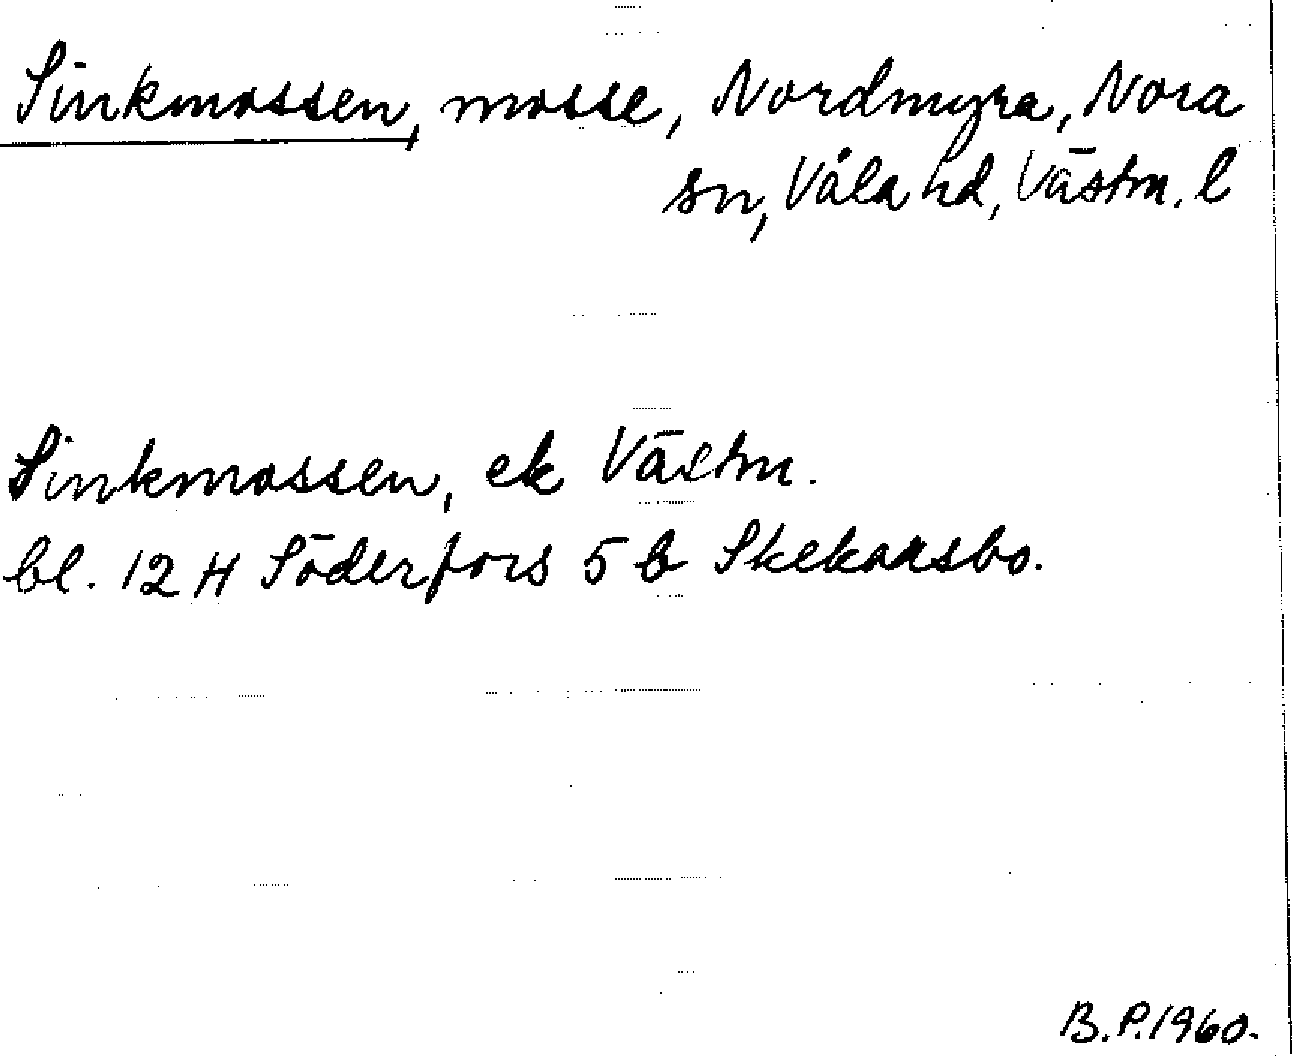 Sinkmossen, mosse, Nordmyra, Nora
sn, Våla hd, Västm. l
Sinkmossen, ek Västm.
bl. 12 H Söderfors 5 b Skekarsbo.
B.P. 1960.